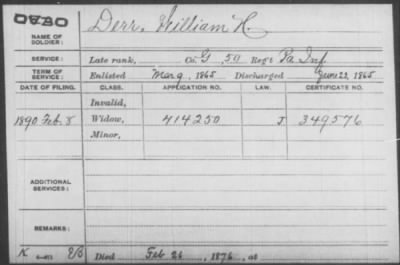 DEAD
NAME OF SOLDIER: Derr, William H.
SERVICE: Late rank, Co. G, 50 Reg't Pa Inf.
TERM OF SERVICE: Enlisted Mar 9, 1865 Discharged June 23, 1865
DATE OF FILING. CLASS. APPLICATION NO. LAW. CERTIFICATE NO.
Invalid,
1890 Feb. 8 Widow, 414250 J 349576
Minor,
ADDITIONAL SERVICES:
REMARKS:
K Died Feb 26, 1876, at